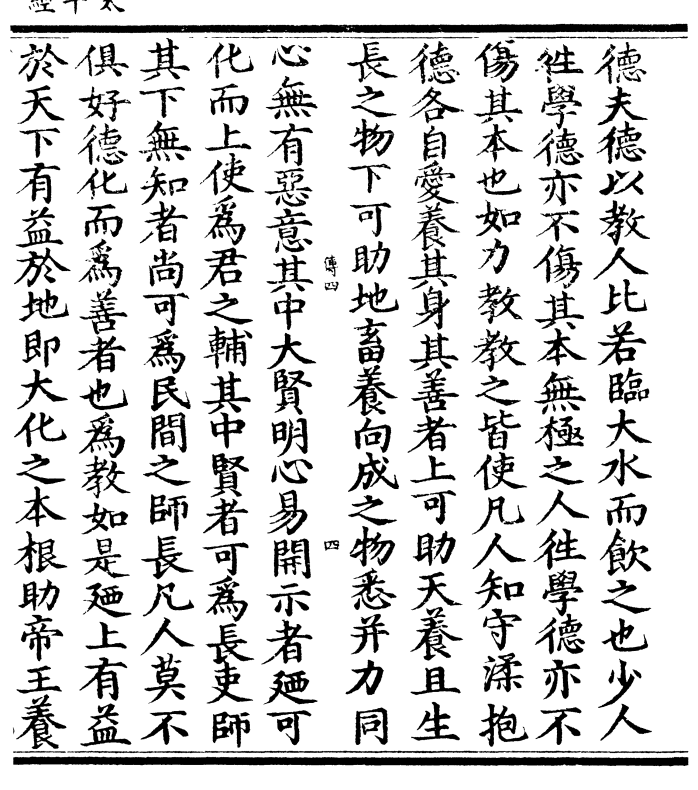 太平經
德夫德以教人比若臨大水而飲之也少人
徃學德亦不傷其本無極之人徃學德亦不
傷其本也如力教教之皆使凡人知守渘抱
德各自愛養其身其善者上可助天養且生
長之物下可助地畜養向成之物悉并力同
傅四 四
心無有惡意其中大賢明心易開示者廼可
化而上使爲君之輔其中賢者可爲長吏師
其下無知者尚可爲民間之師長凡人莫不
俱好德化而爲善者也爲教如是廼上有益
於天下有益於地即大化之本根助帝王養